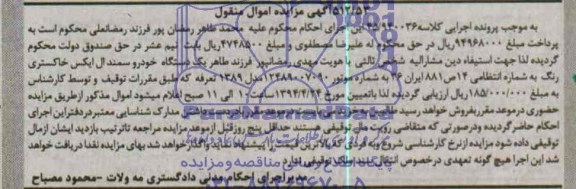 ۵۱۲/۵۳ آگهی مزایده اموال منقول
به موجب پرونده اجرایی کلاسه ۳۵/۹۴۰۰۳۶ این اجرای احکام محکوم علیه محمد طاهر رمضان پور فرزند رمضانعلی محکوم است به
پرداخت مبلغ ۹۴۹۶۸۰۰۰ ریال در حق محکوم له علیرضا مصطفوی و مبلغ ۴۷۴۸۵۰۰ ریال بابت نیم عشر در حق صندوق دولت محکوم
گردیده لذا جهت استیفاء دین مشارالیه شخص ثالثی با هویت مهدی رمضانپور فرزند طاهر یک دستگاه خودرو سمند ال ایکس خاکستری
رنگ به شماره انتظامی ۱۴ص۸۸۱ ایران ۳۶ به شماره موتور ۱۲۴۸۹۰۰۷۰۹۰ مدل ۱۳۸۹ تعرفه که طبق مقررات توقیف و توسط کارشناس
به مبلغ ۱۸۵/۰۰۰/۰۰۰ ریال ارزیابی گردیده لذا باتعیین مورخ ۱۳۹۴/۴/۲۴ ساعت ۱۰ الی ۱۱ صبح اعلام میشود اموال مذکور از طریق مزایده
حضوری در موعد مقرر بفروش خواهد رسید مدارک شناسایی معتبر در دفتر این اجرای
احکام حاضر گردیده و در صورتی که متقاضی رویت مال توقیفی هستند حداقل پنج روز قبل از موعد مزایده مراجعه تا ترتیب بازدید ایشان از مال
توقیفی داده شود مزایده از نرخ کارشناسی شروع و به فردی که بالاترین قیمت را پیشنهاد خواهد شد بهای مزایده نقدا دریافت خواهد
شد این اجرا هیچ گونه تعهدی در خصوص انتقال سند توقیفی ندارد
مدیر اجرای احکام مدنی دادگستری مه ولات - محمود مصباح
ParsNamadData
پایگاه مناقصه و مزایده